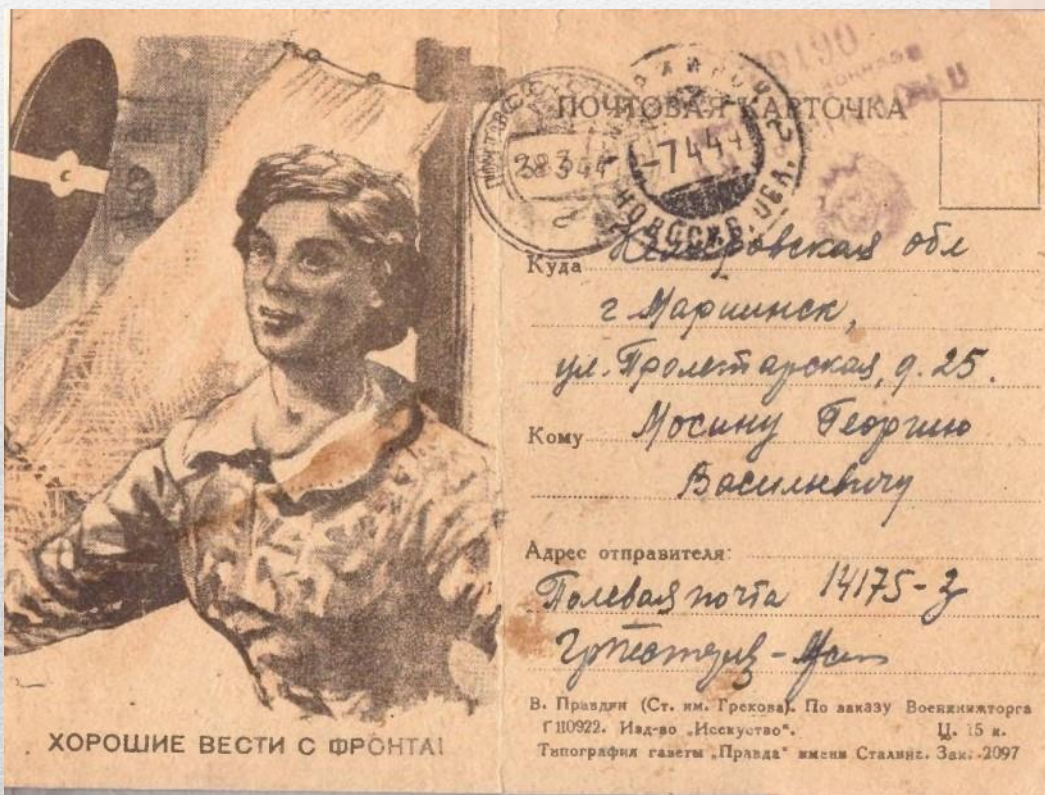 ПОЧТОВАЯ КАРТОЧКА
28 3 44
-7 4 44
НОВОСИБ. ОБЛ.
Куда Кемеровская обл
г Мариинск,
ул. Пролетарская, д. 25.
Кому Мосину Георгию
Васильевичу
Адрес отправителя:
Полевая почта 14175-З
В. Правдин (Ст. им. Грекова). По заказу Воениижторга
Г110922. Изд-во „Исскуство". Ц. 15 к.
Типография газеты „Правда" имени Сталина. Зак. 2097
ХОРОШИЕ ВЕСТИ С ФРОНТА!